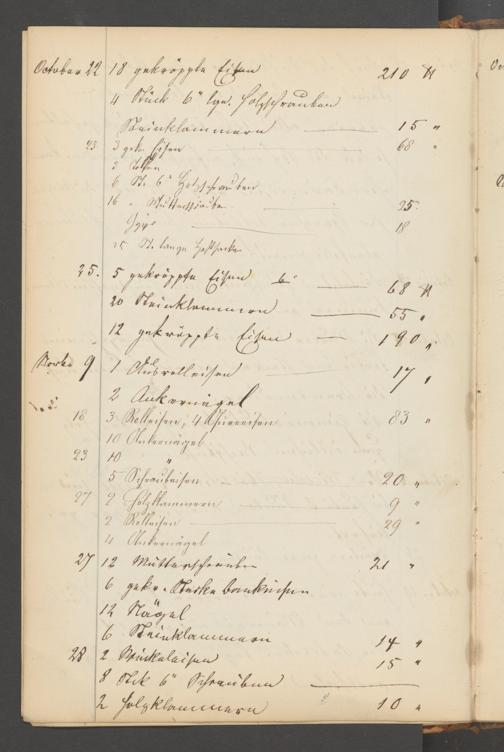 October 22 18 gekröppte Eisen 210 ℔
4 Stück 6" lge. Holzschrauben
Steinklammern 15 "
23 3 gekr. Eisen 68 "
2
6 St. 6" Holzschrauben
16 " Mutterschrauben 25
Gyps 18
25 St. lange
25. 5 gekröppte Eisen 68 ℔
20 Steinklammern 55 "
12 gekröppte Eisen 190 "
9 1 17 "
2 Ankernägel
18 3 Rolleisen, 4 83 "
10 Ankernägel
23 10 "
5 Schraubeisen 20 "
27 2 Holzklammern 9 "
2 Rolleisen 29 "
4 Ankernägel
27 12 Mutterschrauben 21 "
6 gekr. starke
12 Nägel
6 Steinklammern 14 "
28 2 15 "
8 Stck 6" Schrauben
2 Holzklammern 10 "